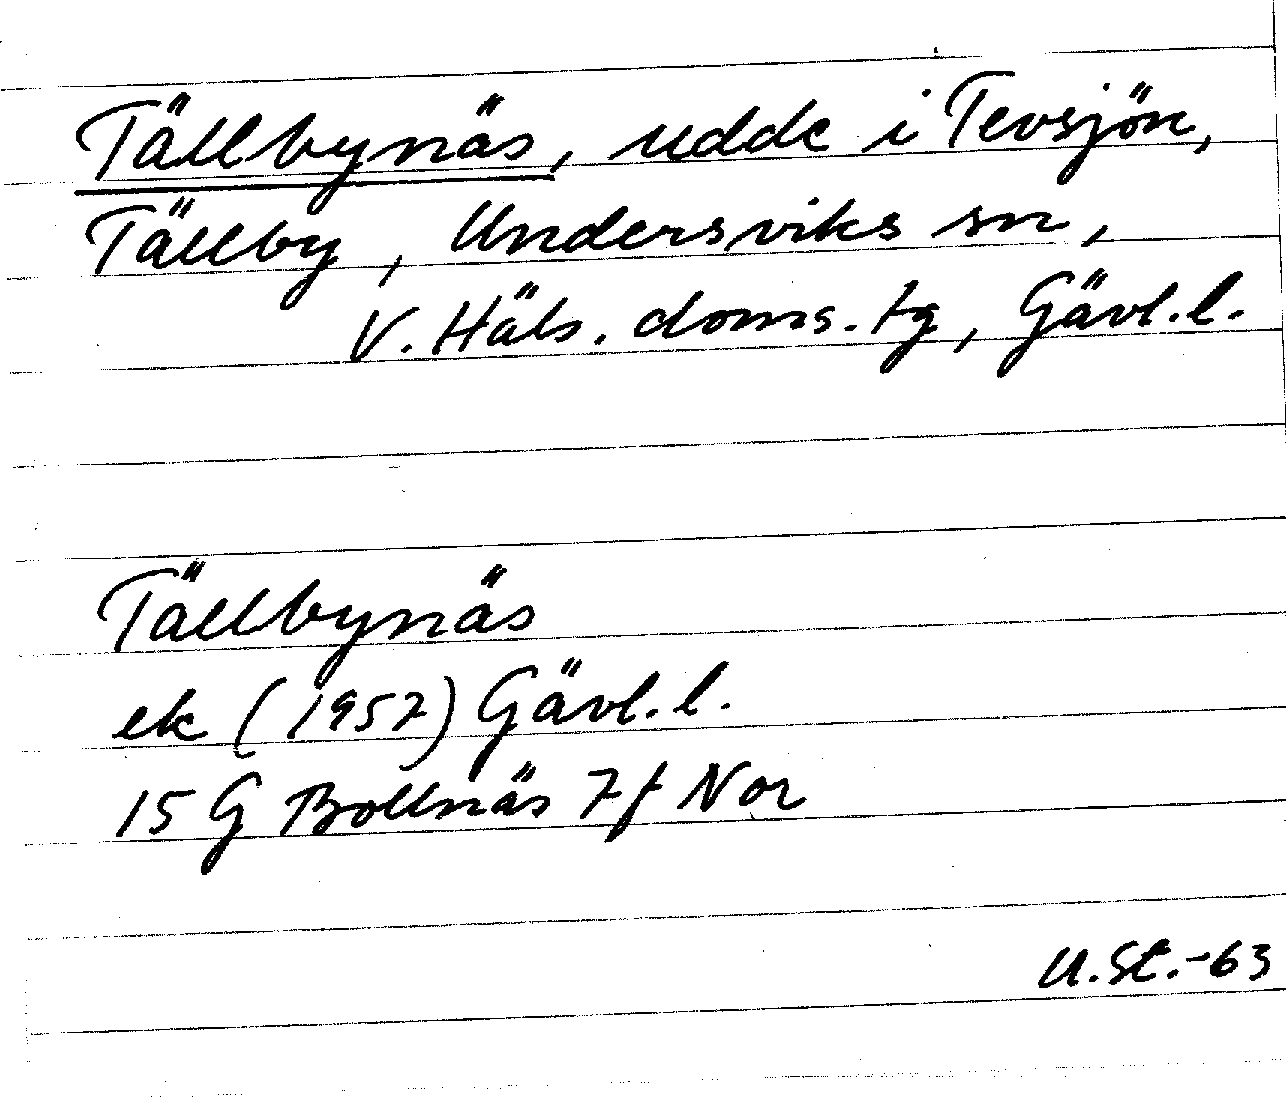 Tällbynäs, udde i Tevsjön,
Tällby, Undersviks sn,
V. Häls. doms. tg, Gävl. l.
Tällbynäs
ek (1957) Gävl. l.
15 G Bollnäs 7f Nor
U. St. -63